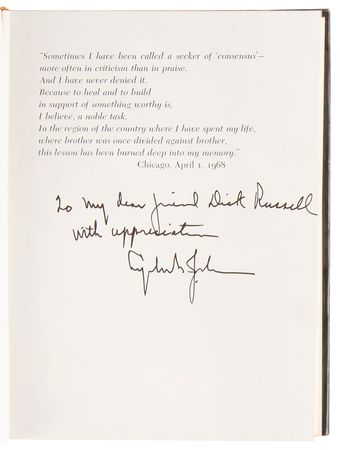 “Sometimes I have been called a seeker of ‘consensus’—
more often in criticism than in praise.
And I have never denied it.
Because to heal and to build
in support of something worthy is,
I believe, a noble task.
In the region of the country where I have spent my life,
where brother was once divided against brother,
this lesson has been burned deep into my memory.”
Chicago, April 1, 1968
To my dear friend Dick Russell
with appreciation
Lyndon B. Johnson